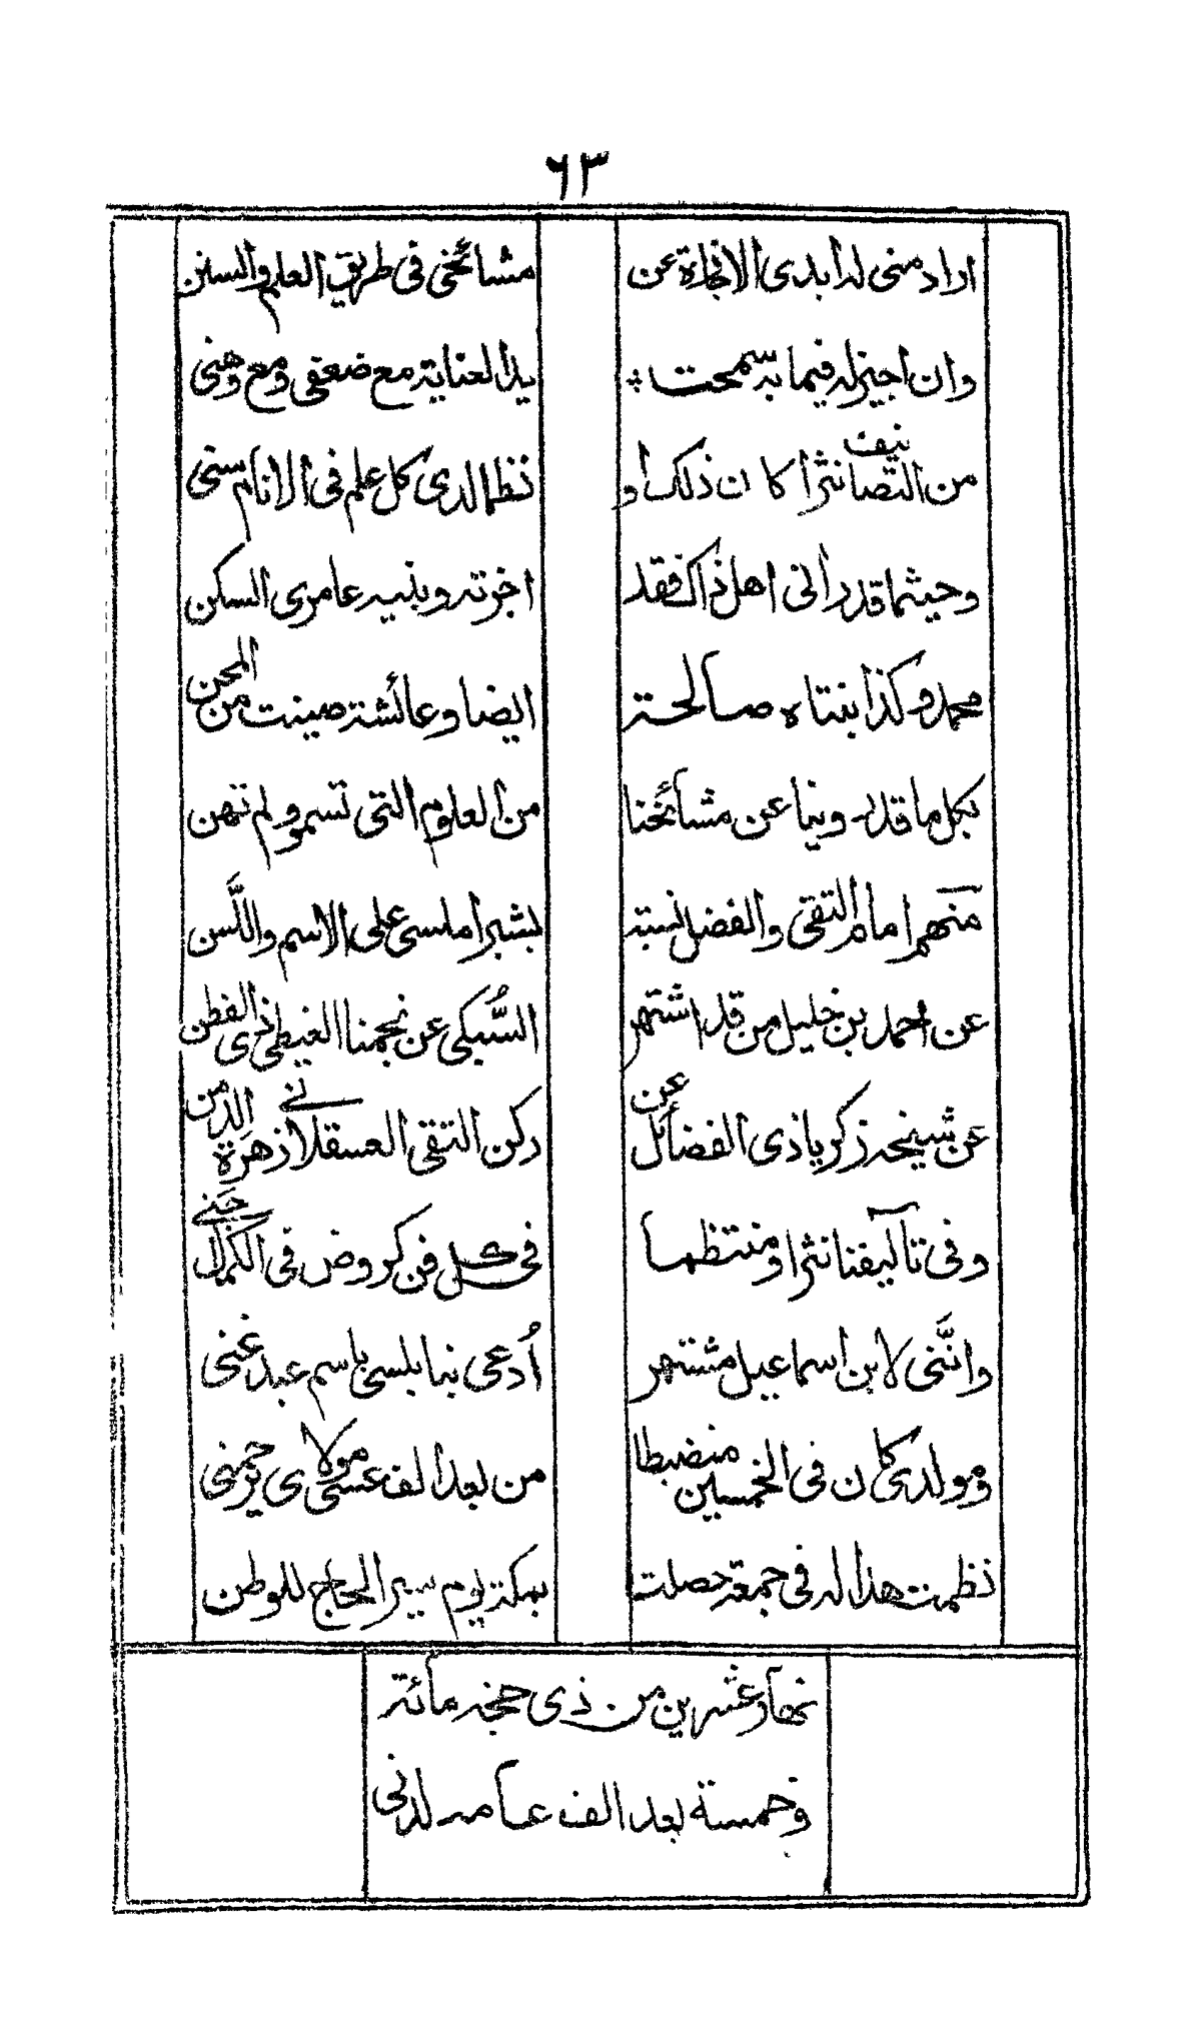 ٦٣
اراد منى له ابدى الاجازة عن مشائخى فى طريق العلم والسنن
وان اجيز له فيما به سمحت يد العناية مع ضعفى ومع وهنى
من التصانيف نثرا كان ذلك او نظما لدى كل علم فى الانام سنى
وحيثما قد رانى اهل ذاك فقد اجزته وبنيه عامرى السكن
محمد وكذا بنتاه صالحة ايضا وعائشة صينت من المحن
بكل ما قد روينا عن مشائخنا من العلوم التى تسمو ولم تهن
منهم امام التقى والفضل نسبته بشبراملسى على الاسم واللَّسن
عن احمد بن خليل من قد اشتهر السُّبكى عن نجمنا الغيطى ذى الفطن
عن شيخه زكريا ذى الفضائل عن ركن التقى العسقلانى زهرة الذمن
وفى تآليفنا نثرا ومنتظما فى كل فن كروض فى الكمال جَنى
وانَّنى لابن اسماعيل مشتهر اُدعى بنابلسى باسم عبد غنى
ومولدى كان فى الخمسين منضبطا من بعد الف عسى مولاى يرحمنى
نظمت هذا له فى جمعة حصلت بمكة يوم سير الحاج للوطن
نهار عشرين من ذى حجة مائة
وخمسة بعد الف عام لدنى